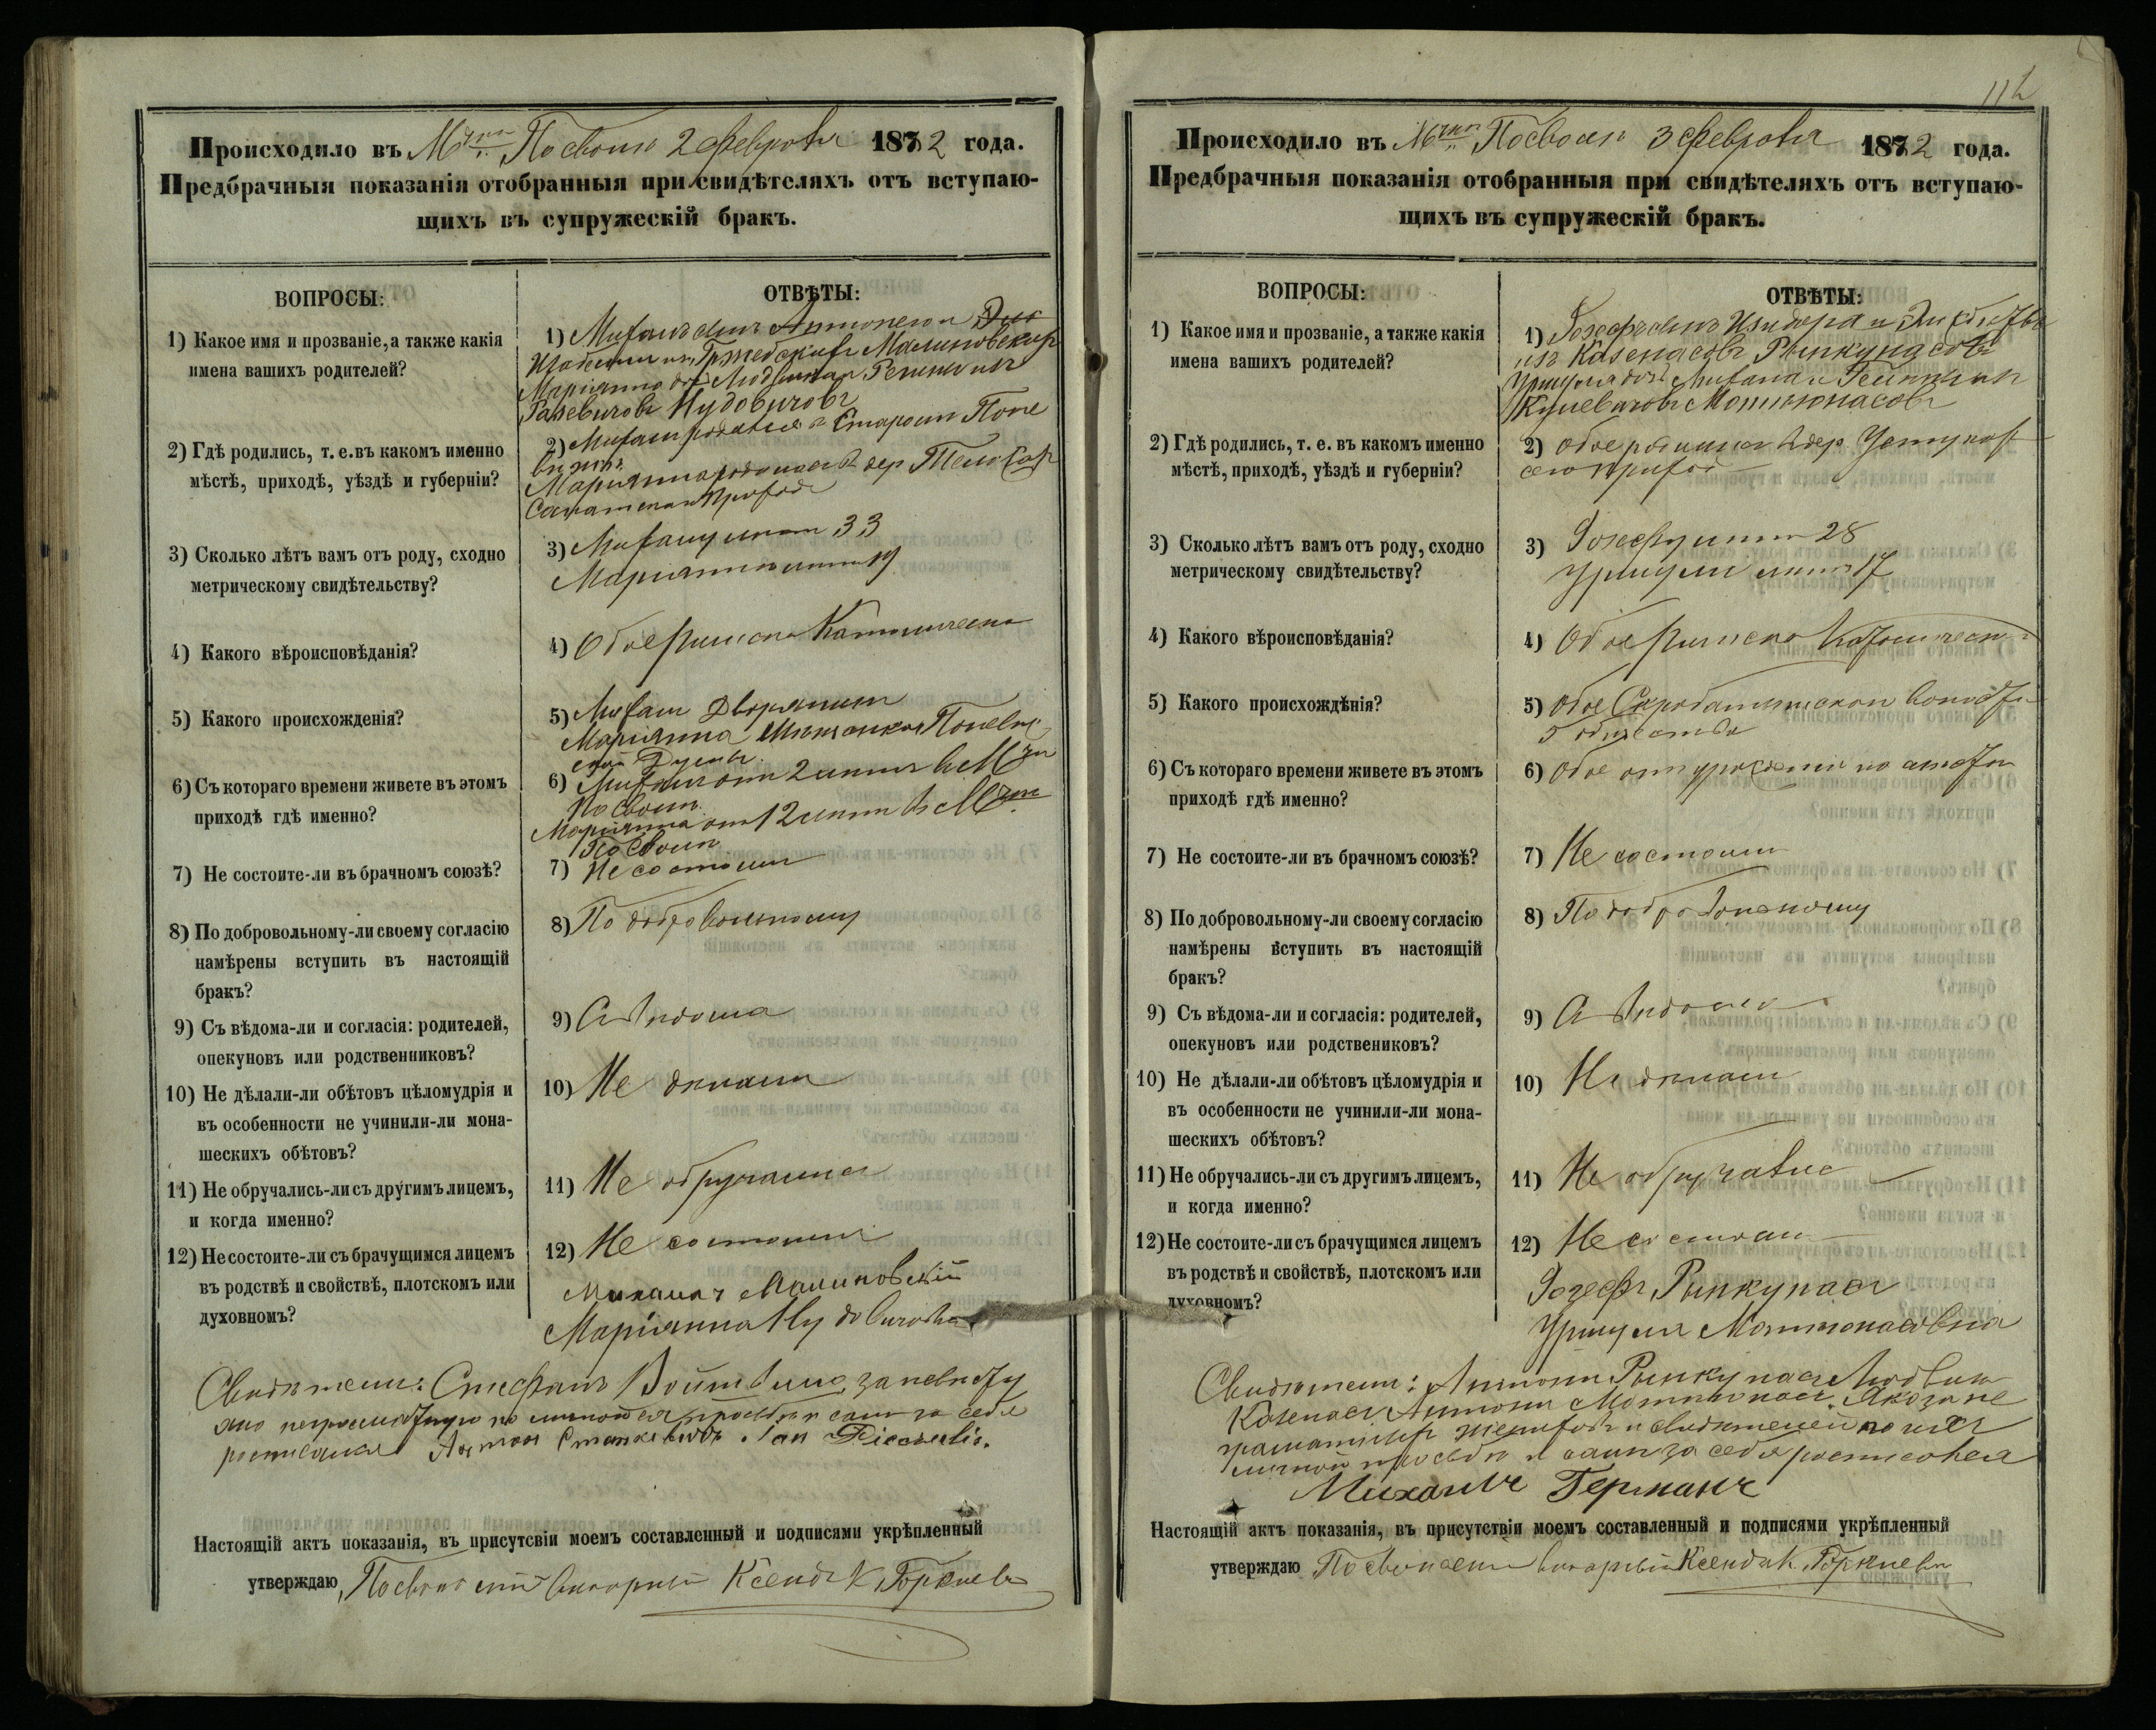 Происходило въ М Посволь 2 Февраля 1882 года.
Предбрачныя показанія отобранныя при свидѣтеляхъ отъ вступаю-
щихъ въ супружескій бракъ.
ВОПРОСЫ:
ОТВѢТЫ:
1) Какое имя и прозваніе, а также какія
имена вашихъ родителей?
1) Михаилъ сынъ
Малиновскихъ
Маріянна
2) Гдѣ родились, т. е. въ какомъ именно
мѣстѣ, приходѣ, уѣздѣ и губерніи?
2) Михаилъ родился въ Старомъ Поне
Маріянна родилась въ дер
прихода
3) Сколько лѣтъ вамъ отъ роду, сходно
метрическому свидѣтельству?
3) Михаилу лѣтъ 33
Маріяннѣ лѣтъ 19
4) Какого вѣроисповѣданія?
4) Обое Римско Католическа
5) Какого происхожденія?
5) Михаилъ Дворянинъ
Маріянна Мѣщанка Поневѣж
ской Думы
6) Съ котораго времени живете въ этомъ
приходѣ гдѣ именно?
6) Михаилъ отъ 2 лѣтъ въ М
Посволь
Маріянна отъ 12 лѣтъ въ М
Посволь
7) Не состоите-ли въ брачномъ союзѣ?
7) Не состоимъ
8) По добровольному-ли своему согласію
намѣрены вступить въ настоящій
бракъ?
8) По добровольному
9) Съ вѣдома-ли и согласія: родителей,
опекуновъ или родственниковъ?
9) С вѣдома
10) Не дѣлали-ли обѣтовъ цѣломудрія и
въ особенности не учинили-ли мона-
шескихъ обѣтовъ?
10) Не дѣлали
11) Не обручались-ли съ другимъ лицемъ,
и когда именно?
11) Не обручались
12) Не состоите-ли съ брачущимся лицемъ
въ родствѣ и свойствѣ, плотскомъ или
духовномъ?
12) Не состоимъ
Михаилъ Малиновскій
Маріянна
Свидѣтели: Стефанъ Войтвило за невѣсту
личной просьбѣ и самъ за себя
росписался Антон Станкевичъ Jan
Настоящій актъ показанія, въ присутсвіи моемъ составленный и подписями укрѣпленный
утверждаю Посвольскій Викарный Ксендзъ К
112
Происходило въ М Посволь 3 Февраля 1882 года.
Предбрачныя показанія отобранныя при свидѣтеляхъ отъ вступаю-
щихъ въ супружескій бракъ.
ВОПРОСЫ:
ОТВѢТЫ:
1) Какое имя и прозваніе, а также какія
имена вашихъ родителей?
1) Іозефъ сынъ Изидора и
изъ Казенасовъ Рынкунасовъ
Уршуля дочь Михаила и
Мотеюнасовъ
2) Гдѣ родились, т. е. въ какомъ именно
мѣстѣ, приходѣ, уѣздѣ и губерніи?
2) Обое родились въ дер.
сего прихода
3) Сколько лѣтъ вамъ отъ роду, сходно
метрическому свидѣтельству?
3) Іозефу лѣтъ 28
Уршули лѣтъ 17
4) Какого вѣроисповѣданія?
4) Обое Римско Католическа
5) Какого происхождѣнія?
5) Обое волости
общества
6) Съ котораго времени живете въ этомъ
приходѣ гдѣ именно?
6) Обое отъ урожденія
7) Не состоите-ли въ брачномъ союзѣ?
7) Не состоимъ
8) По добровольному-ли своему согласію
намѣрены вступить въ настоящій
бракъ?
8) По добровольному
9) Съ вѣдома-ли и согласія: родителей,
опекуновъ или родствениковъ?
9) С вѣдома
10) Не дѣлали-ли обѣтовъ цѣломудрія и
въ особенности не учинили-ли мона-
шескихъ обѣтовъ?
10) Не дѣлали
11) Не обручались-ли съ другимъ лицемъ,
и когда именно?
11) Не обручались
12) Не состоите-ли съ брачущимся лицемъ
въ родствѣ и свойствѣ, плотскомъ или
духовномъ?
12) Не состоимъ
Іозефъ Рынкунасъ
Уршуля Мотеюнасовна
Свидѣтели: Антонъ Рынкунасъ Людвикъ
Казенасъ Антонъ Мотеюнасъ. А за не
грамотныхъ и свидѣтелей по ихъ
личной просьбѣ и самъ за себя росписался
Михаилъ Германъ
Настоящій актъ показанія, въ присутствіи моемъ составленный и подписями укрѣпленный
утверждаю Посвольскій Викарный Ксендзъ К.